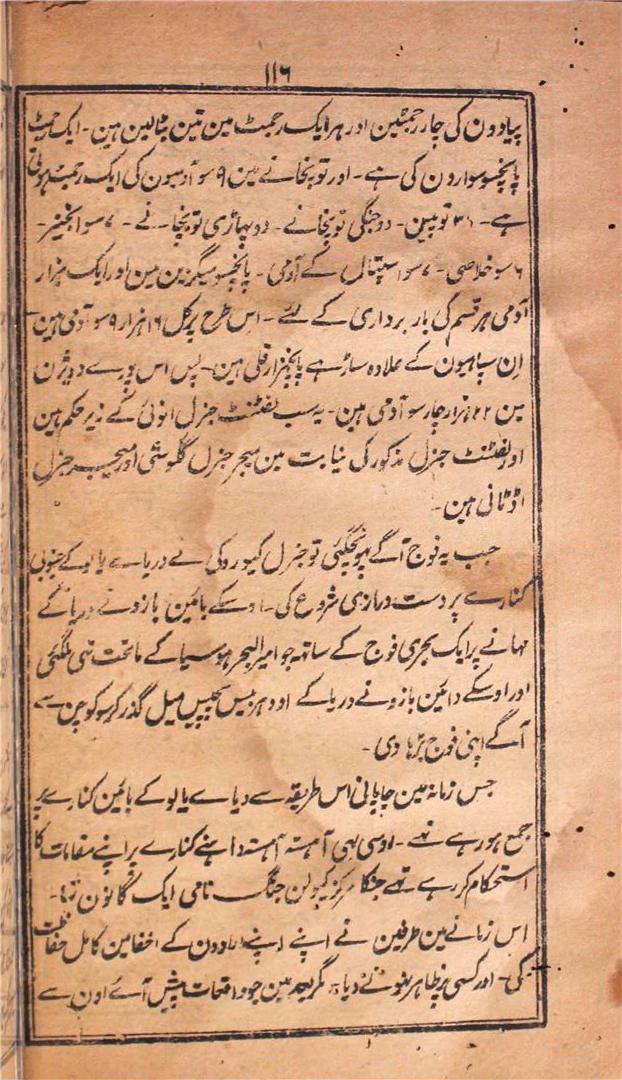 ۱۱۶
پیادون کی چار رجمٹین اور ہرایک رجمٹ مین تین بٹالین ہین۔ ایک رجمٹ
پانچسو سوارون کی ہے۔ اور توپخانے مین ۹ سو آدمیون کی ایک رجمٹ ہوتی
ہے۔ ۳۶ توپین۔ دو جنگی توپخانے۔ دو پہاڑی توپخانے۔ ۷ سو انجنیر۔
۶ سو خلاصی۔ ۷ سو اسپتال کے آدمی۔ پانچسو میگزین مین اور ایک ہزار
آدمی ہر قسم کی بار برداری کے لئے۔ اس طرح پر کل ۱۶ ہزار ۹ سو آدمی ہین
ان سپاہیون کے علاوہ ساڑہے پانچہزار قلی ہین۔ پس اس پورے ڈویژن
مین ۲۲ ہزار چار سو آدمی ہین۔ یہ سب لفٹنٹ جنرل انوئی کے زیر حکم ہین
اور لفٹنٹ جنرل مذکور کی نیابت مین میجر جنرل گلوشی اور میجر جنرل
اڈٹانی ہین۔
جب یہ فوج آگے پہونچگئی تو جنرل کیوروکی نے دریاے یالو کے جنوبی
کنارے پر دست درازی شروع کی۔ اوسکے بائین بازو نے دریا کے
مہانے پر ایک بحری فوج کے ساتہہ جو امیرالبحر ہوسیا کے ماتحت تہی ملگئی
اور اوسکے دائین بازو نے دریا کے اودہر بیس پچیس میل گذر کر سوکوچن سے
آگے اپنی فوج بڑہا دی۔
جس زمانہ مین جاپانی اس طریقہ سے دیاے یالو کے بائین کنارے پر
جمع ہورہے تہے۔ اوسی بہی آہستہ آہستہ داہنے کنارے پر اپنے مقامات کا
استحکام کررہے تہے جنکا مرکز کیولن جنگ نامی ایک گانون تہا۔
اس زمانے مین طرفین نے اپنے اپنے ارادون کے اخفا مین کامل حفاظت
کی۔ اور کسی پر ظاہر نہونے دیا۔ مگر بعد مین جو واقعات پیش آئے اون سے